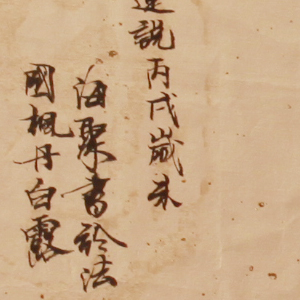 蓮説丙戌歲末
海聚書於法
國楓丹白露